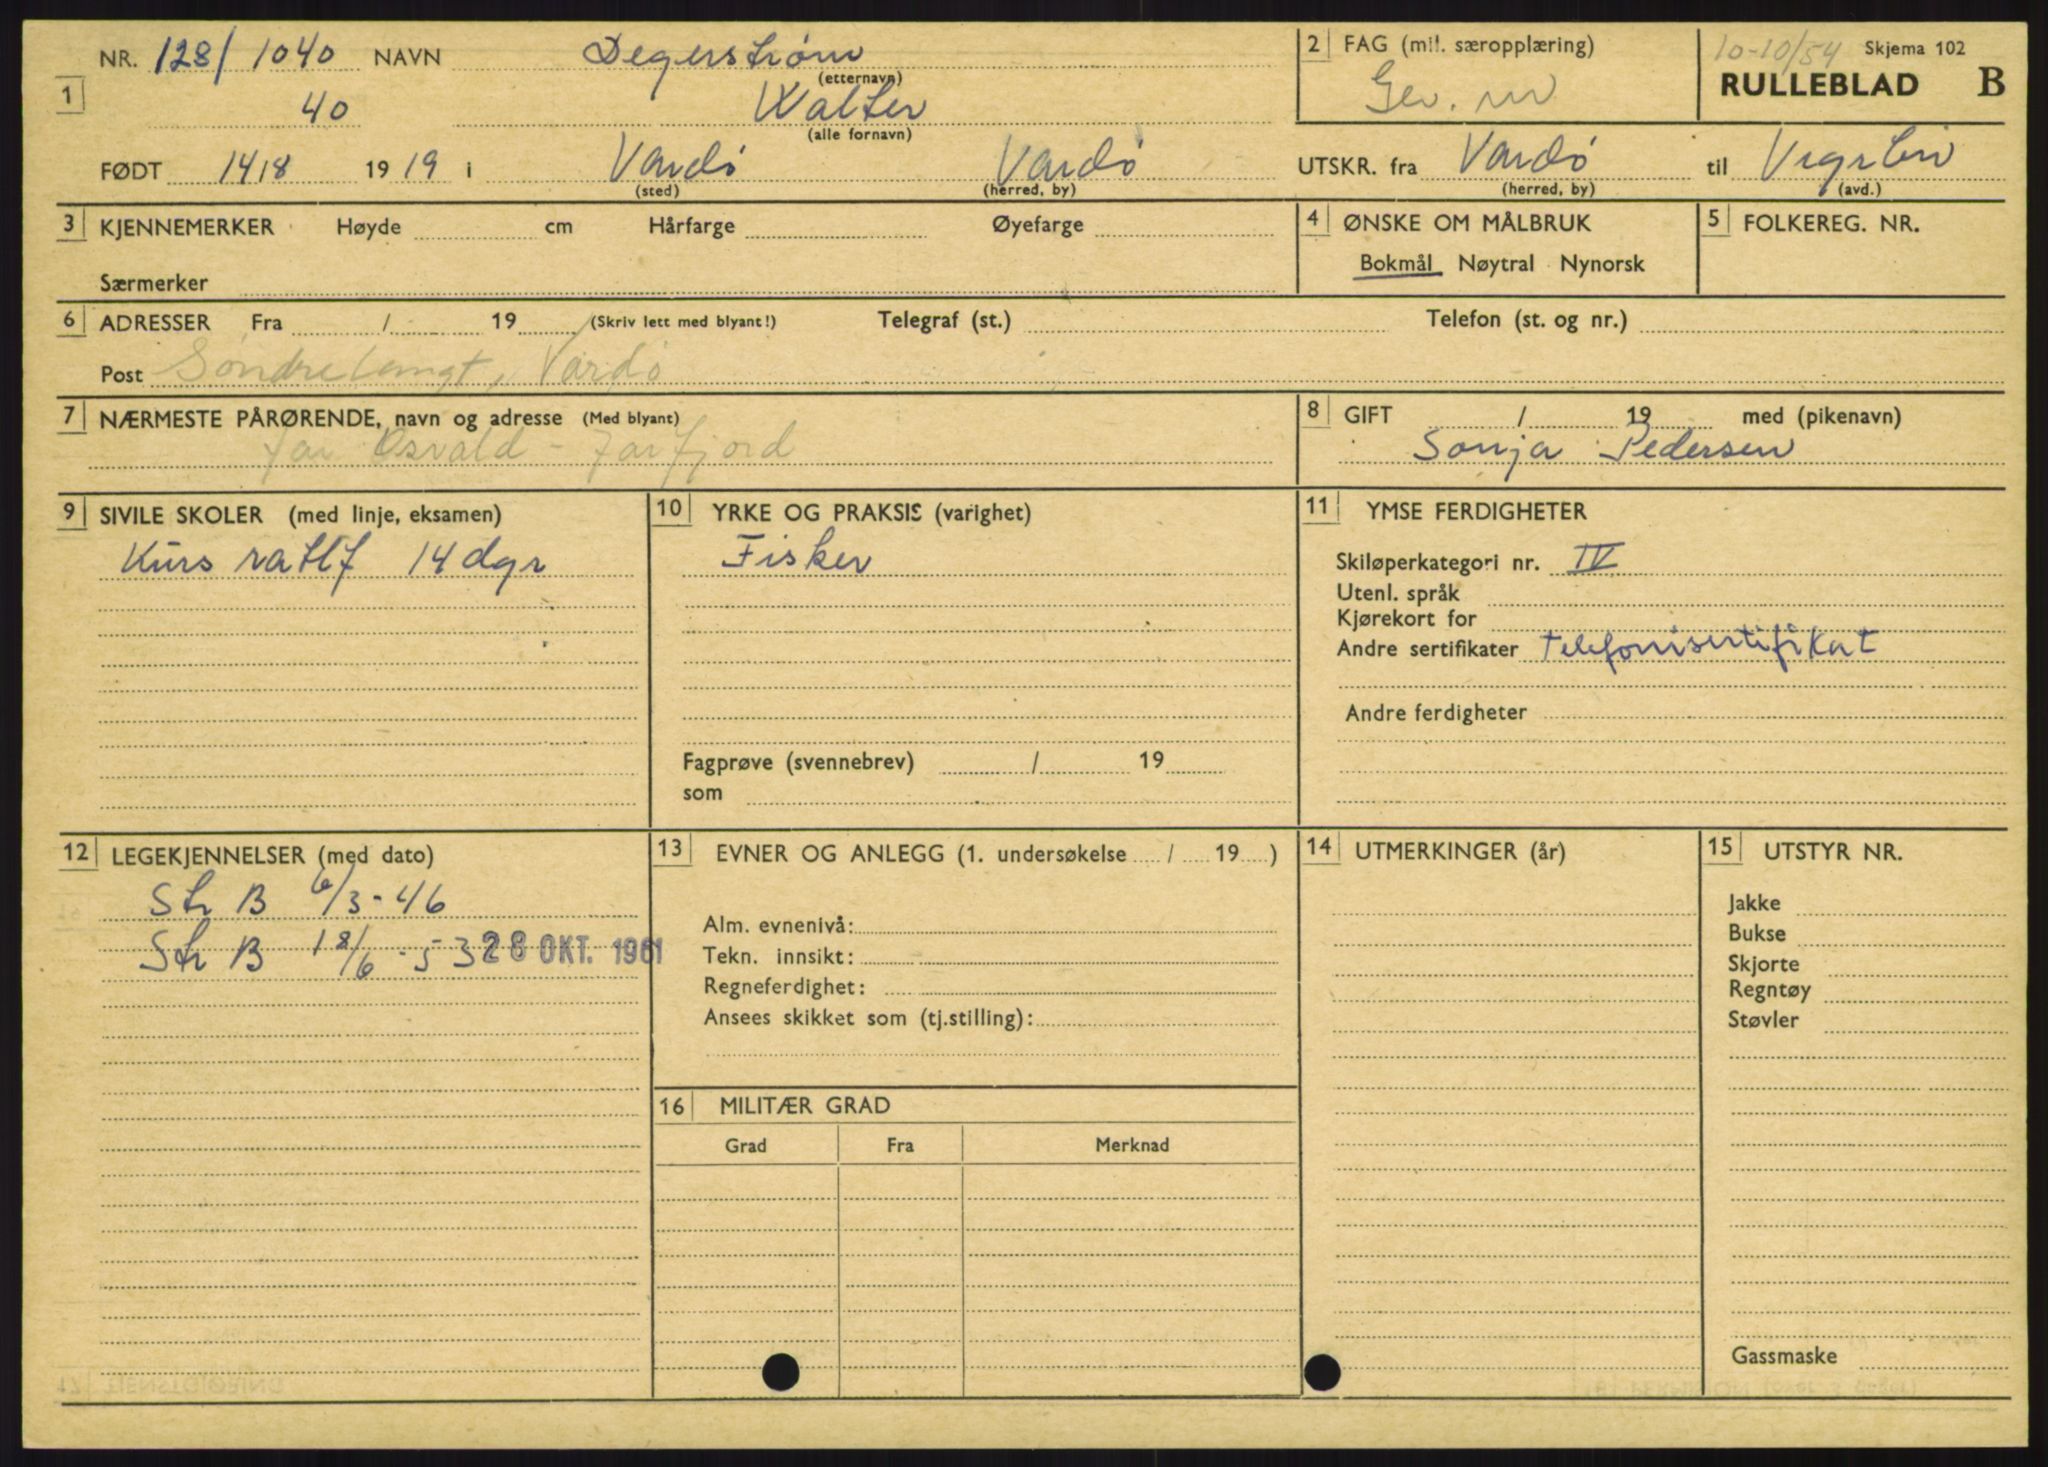 NR. 128/1040 NAVN Degerstrøm
(etternavn)
1 40 Walter
(alle fornavn)
FØDT 14/8 1919 i Vardø Vardø
(sted) (herred, by)
2 FAG (mil. særopplæring)
Gev. m
10-10/54 Skjema 102
RULLEBLAD B
UTSKR. fra Vardø til
(herred, by) (avd.)
3 KJENNEMERKER Høyde cm Hårfarge Øyefarge
Særmerker
4 ØNSKE OM MÅLBRUK
Bokmål Nøytral Nynorsk
5 FOLKEREG. NR.
6 ADRESSER Fra / 19 (Skriv lett med blyant!) Telegraf (st.) Telefon (st. og nr.)
Post Søndre Langt, Vardø
7 NÆRMESTE PÅRØRENDE, navn og adresse (Med blyant)
far Osvald - Jarfjord
8 GIFT / 19 med (pikenavn)
Sonja Pedersen
9 SIVILE SKOLER (med linje, eksamen)
Kurs ratlf 14 dgr
10 YRKE OG PRAKSIS (varighet)
Fisker
Fagprøve (svennebrev) / 19
som
11 YMSE FERDIGHETER
Skiløperkategori nr. IV
Utenl. språk
Kjørekort for
Andre sertifikater Telefonisertifikat
Andre ferdigheter
12 LEGEKJENNELSER (med dato)
Str B 6/3-46
Str B 18/6-53 28 OKT. 1961
13 EVNER OG ANLEGG (1. undersøkelse / 19 )
Alm. evnenivå:
Tekn. innsikt:
Regneferdighet:
Ansees skikket som (tj.stilling):
14 UTMERKINGER (år)
15 UTSTYR NR.
Jakke
Bukse
Skjorte
Regntøy
Støvler
Gassmaske
16 MILITÆR GRAD
Grad Fra Merknad